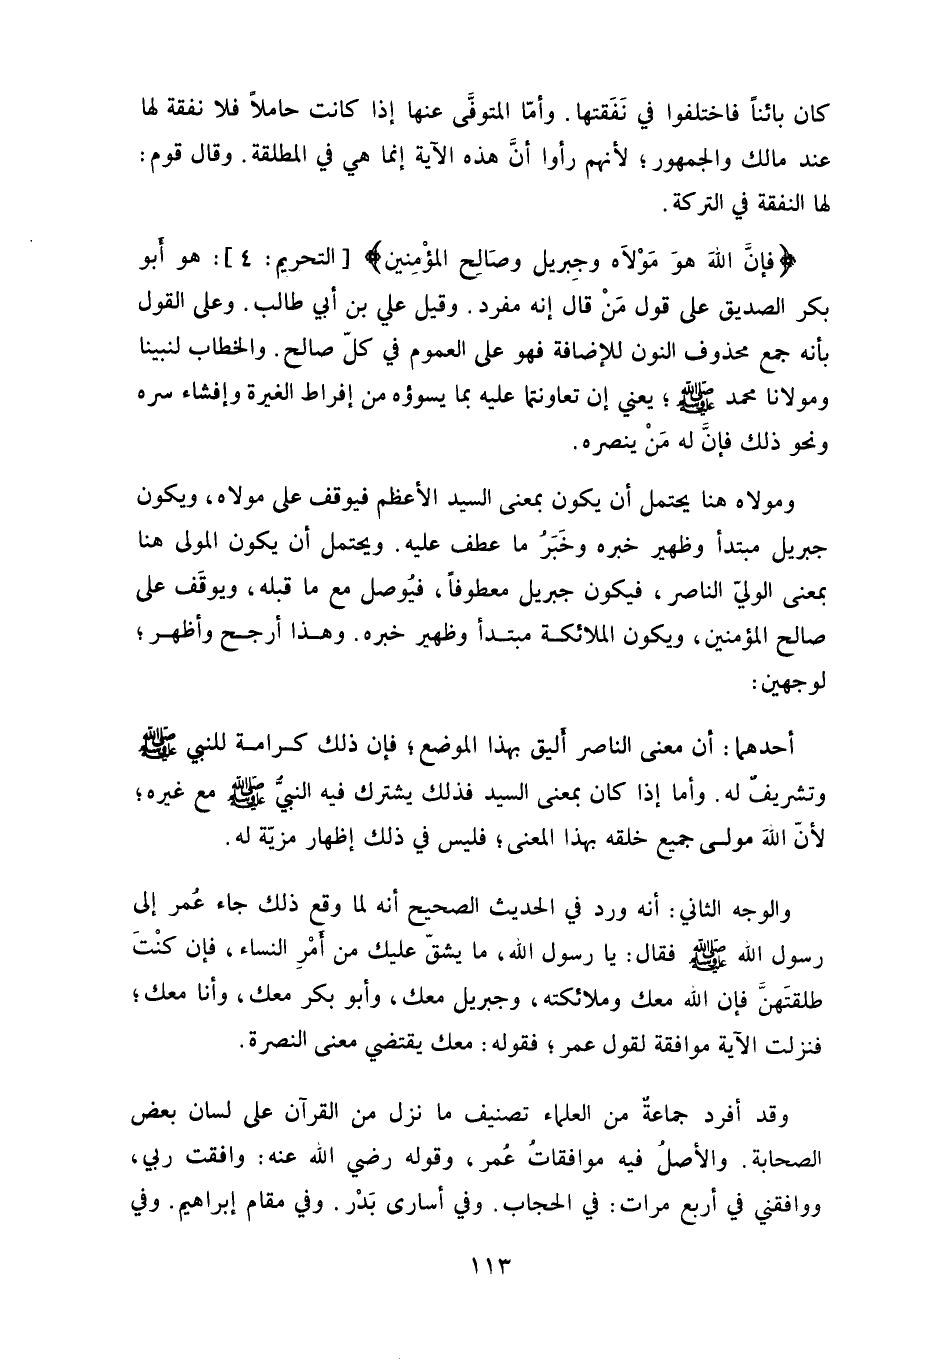 كان بائناً فاختلفوا في نَفَقتها. وأمّا المتوفَّى عنها إذا كانت حاملاً فلا نفقة لها
عند مالك والجمهور؛ لأنهم رأوا أنَّ هذه الآية إنما هي في المطلقة. وقال قوم:
لها النفقة في التركة.
﴿فإنَّ اللهَ هوَ مَوْلاَه وجِبريل وصَالِح المؤْمِنين﴾ [التحريم: ٤]: هو أبو
بكر الصديق على قول مَنْ قال إنه مفرد. وقيل علي بن أبي طالب. وعلى القول
بأنه جمع محذوف النون للإضافة فهو على العموم في كلّ صالح. والخطاب لنبينا
ومولانا محمد ﷺ؛ يعني إن تعاونتما عليه بما يسوؤه من إفراط الغيرة وإفشاء سره
ونحو ذلك فإنَّ له مَنْ ينصره.
ومولاه هنا يحتمل أن يكون بمعنى السيد الأعظم فيوقف على مولاه، ويكون
جبريل مبتدأ وظهير خبره وخَبَرُ ما عطف عليه. ويحتمل أن يكون المولى هنا
بمعنى الوليّ الناصر، فيكون جبريل معطوفاً، فيُوصل مع ما قبله، ويوقَف على
صالح المؤمنين، ويكون الملائكة مبتدأ وظهير خبره. وهذا أرجح وأظهر؛
لوجهين:
أحدهما: أن معنى الناصر أليق بهذا الموضع؛ فإن ذلك كرامة للنبي ﷺ
وتشريفٌ له. وأما إذا كان بمعنى السيد فذلك يشترك فيه النبيُّ ﷺ مع غيره؛
لأنّ اللهَ مولى جميع خلقه بهذا المعنى؛ فليس في ذلك إظهار مزيّة له.
والوجه الثاني: أنه ورد في الحديث الصحيح أنه لما وقع ذلك جاء عُمر إلى
رسول الله ﷺ فقال: يا رسول الله، ما يشقّ عليك من أَمْرِ النساء، فإن كنْتَ
طلقتَهنَّ فإن الله معك وملائكته، وجبريل معك، وأبو بكر معك، وأنا معك؛
فنزلت الآية موافقة لقول عمر؛ فقوله: معك يقتضي معنى النصرة.
وقد أفرد جماعةٌ من العلماء تصنيف ما نزل من القرآن على لسان بعض
الصحابة. والأصلُ فيه موافقاتُ عُمر، وقوله رضي الله عنه: وافقت ربي،
ووافقني في أربع مرات: في الحجاب. وفي أسارى بَدْر. وفي مقام إبراهيم. وفي
١١٣